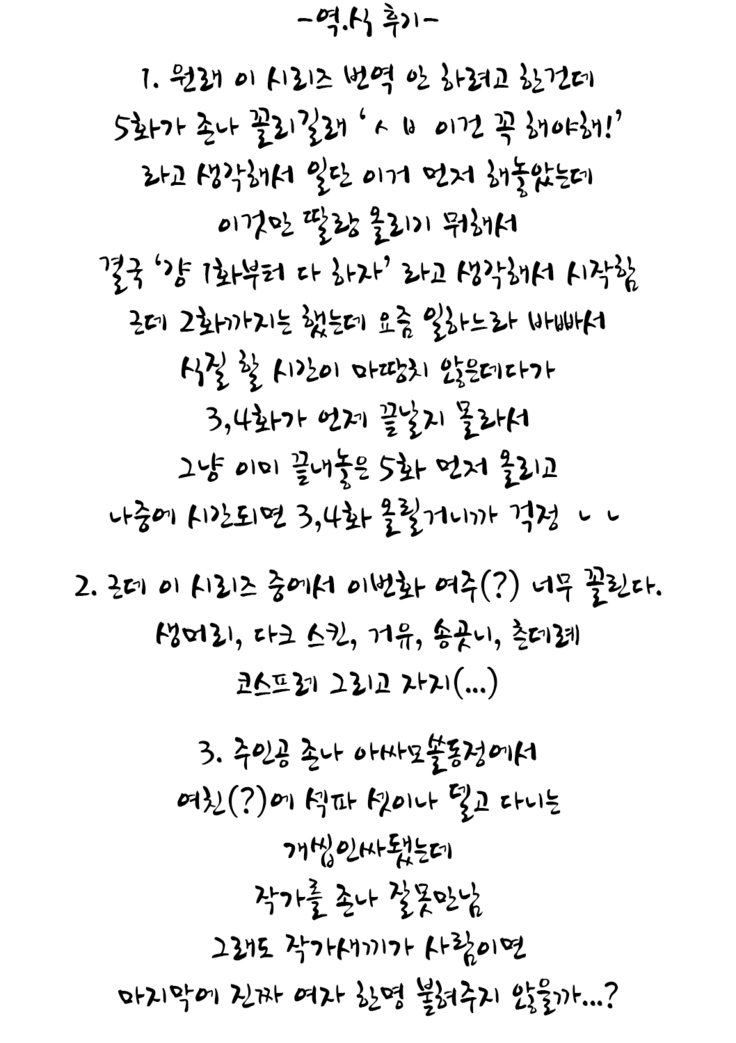 -역.식 후기-
1. 원래 이 시리즈 번역 안 하려고 한건데
5화가 존나 꼴리길래 'ㅅㅂ 이건 꼭 해야해!'
라고 생각해서 일단 이거 먼저 해놓았는데
이것만 딸랑 올리기 뭐해서
결국 '걍 1화부터 다 하자' 라고 생각해서 시작함
근데 2화까지는 했는데 요즘 일하느라 바빠서
식질 할 시간이 마땅치 않은데다가
3,4화가 언제 끝날지 몰라서
그냥 이미 끝내놓은 5화 먼저 올리고
나중에 시간되면 3,4화 올릴거니까 걱정 ㄴㄴ
2. 근데 이 시리즈 중에서 이번화 여주(?) 너무 꼴린다.
생머리, 다크 스킨, 거유, 송곳니, 츤데레
코스프레 그리고 자지(...)
3. 주인공 존나 아싸모쏠동정에서
여친(?)에 섹파 셋이나 델고 다니는
개씹인싸됐는데
작가를 존나 잘못만남
그래도 작가새끼가 사람이면
마지막에 진짜 여자 한명 붙혀주지 않을까...?